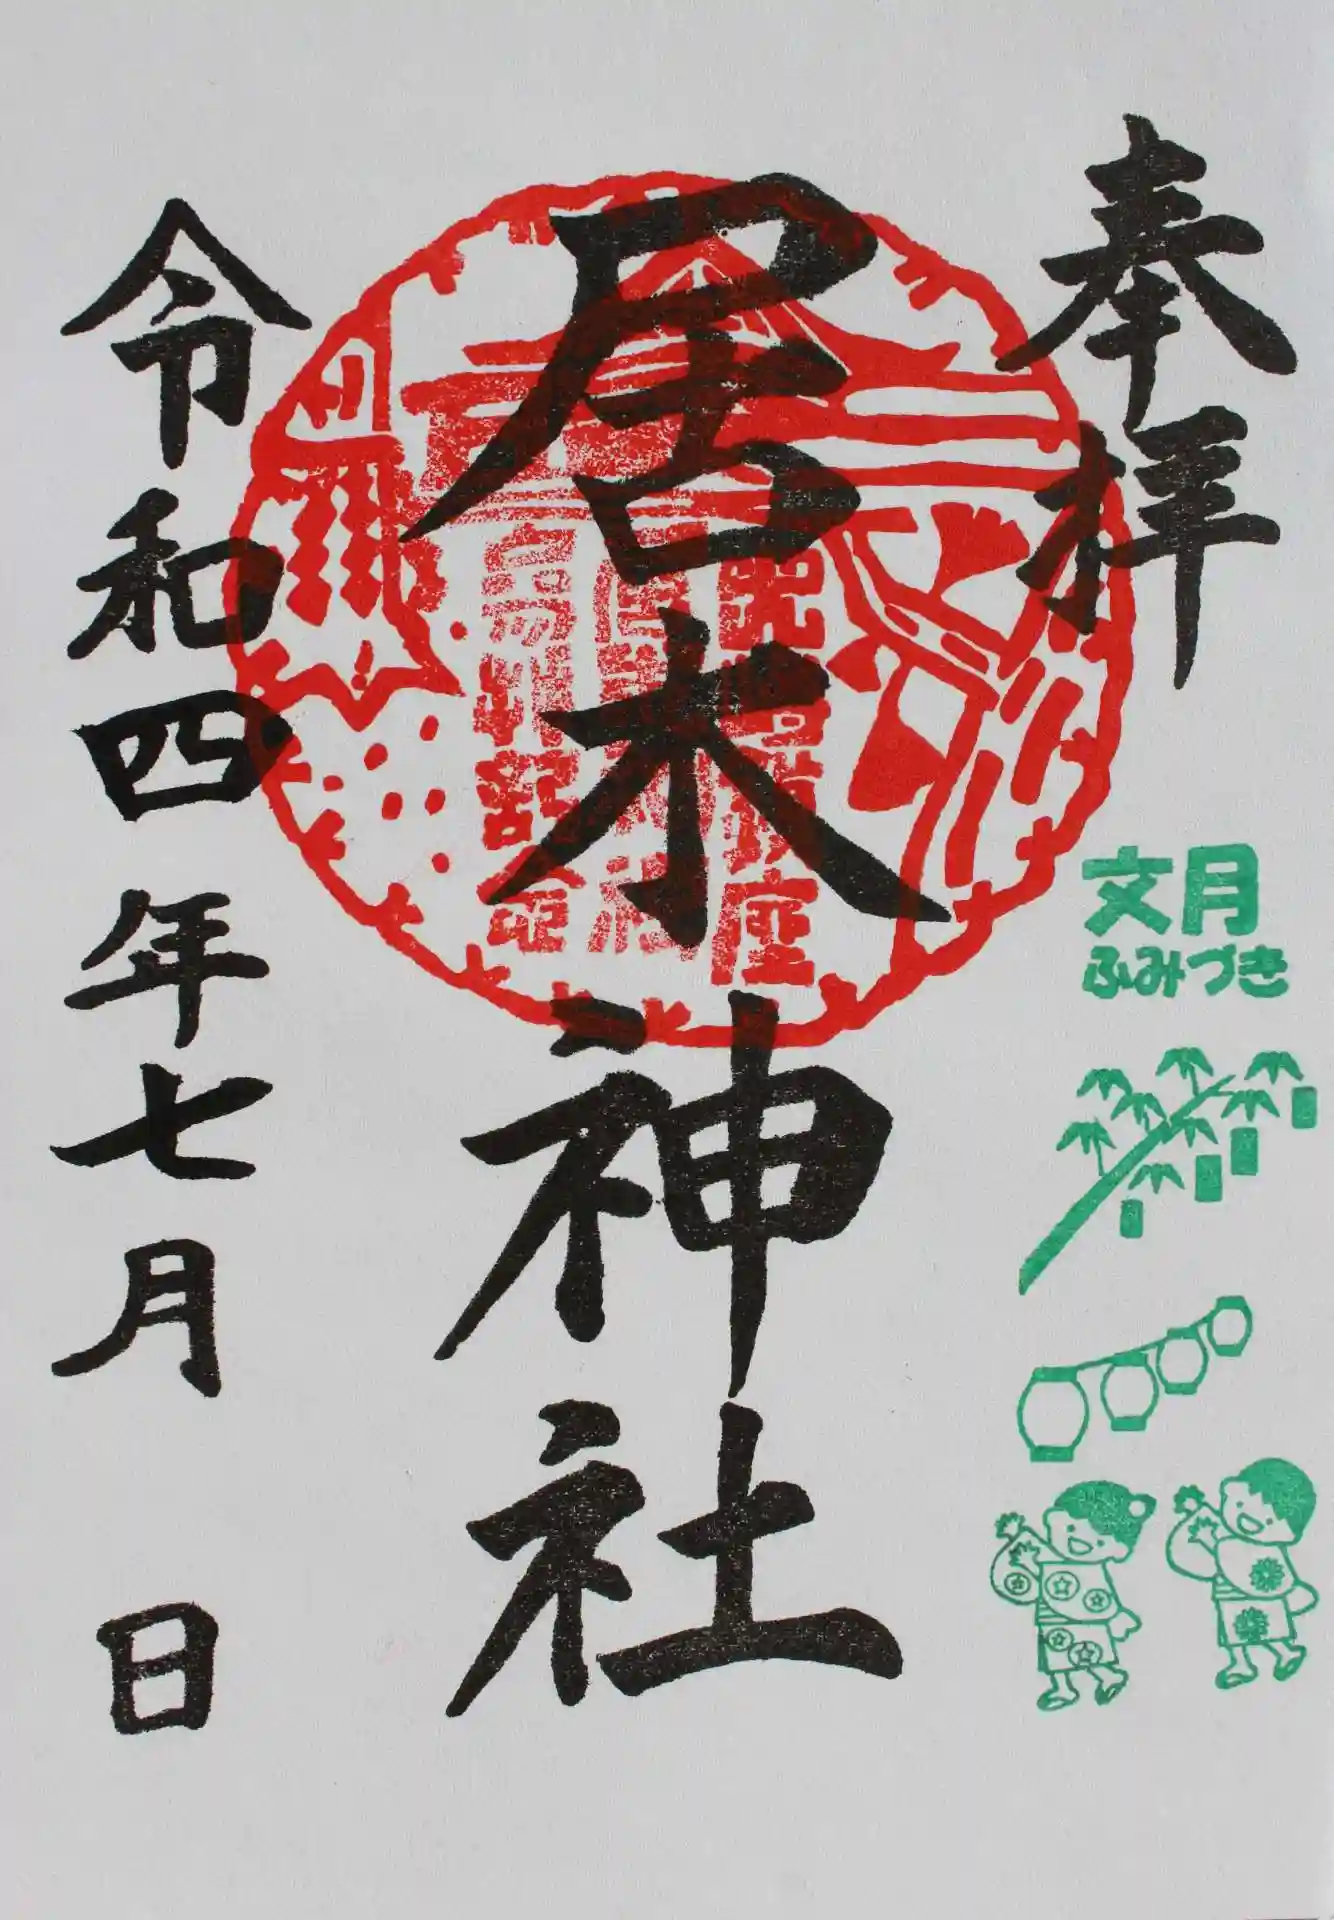 奉拝
居木神社
令和四年七月 日
文月
ふみづき